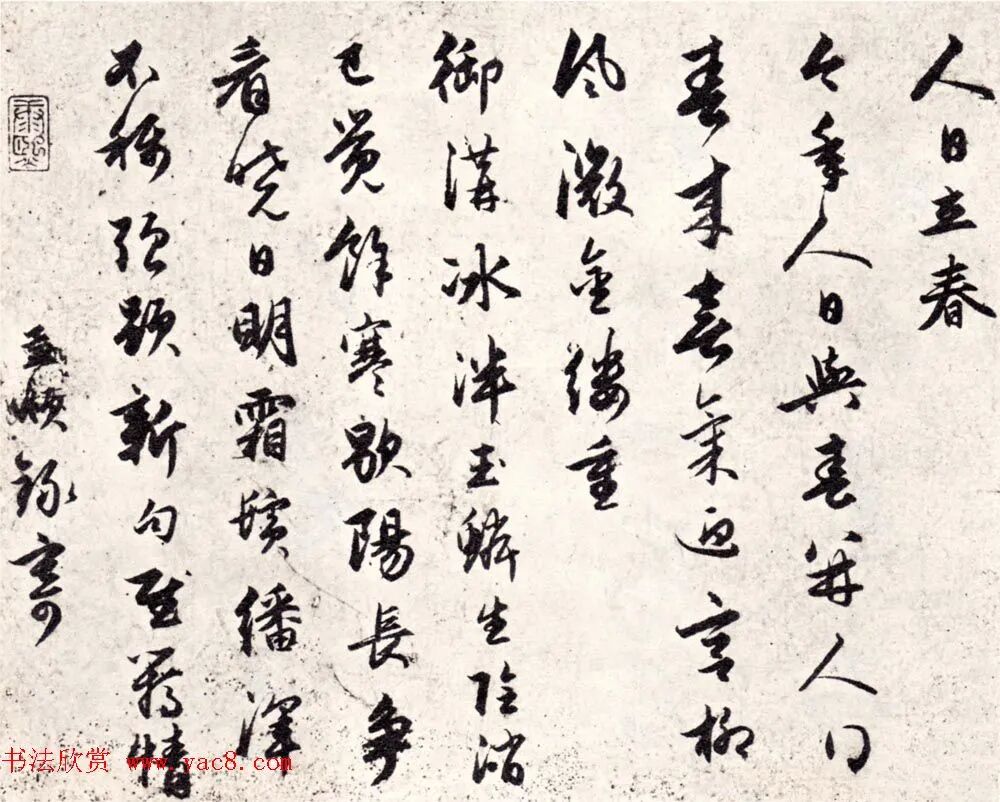 人日立春
今年人日與春并人
春来喜氣迎宫柳
風微金縷重
御溝冰泮玉鱗生陰消
已覺餘寒歇陽長争
看曉日明霜鬢繙渾
不稱强題新句情
孟頫録寄
书法欣赏 www.yac8.com